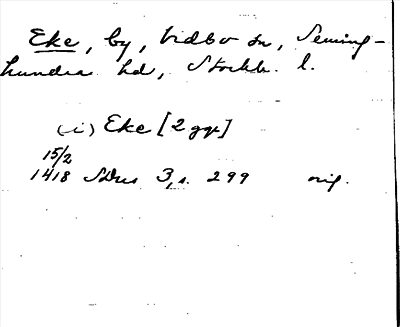 Eke, by, Vidbo sn, Seming-
hundra hd, Stockh. l.
(i) Eke [2 ggr]
15/2
1418 SDns 3, s. 299 orig.